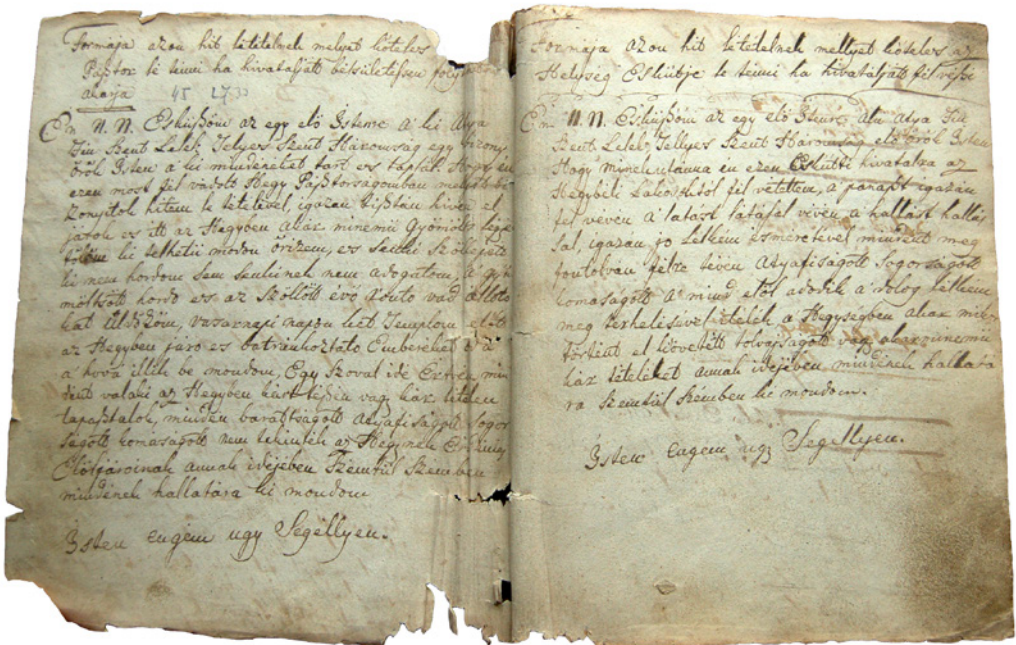 Formája azon hit letételnek melyet köteles
Pásztor le tenni ha hivatalját betsületessen folytatni
akarja 45 27.
Én N. N. Esküszöm az egy elő Istenre a' ki Atya
Fiu Szent Lélek Telyes Szent Háromság egy bizony
örök Isten a' ki mindeneket tart és táplál. Hogy én
ezen most fel vádolt Hegy Pásztorságomban mellyet bi
zonyitok hitem le tételével, igazán tisztán hiven el
járok és itt az Hegyben akár minemű Gyömölts
ki telhető módon örizem, és senki Szőlejéből
ki nem hordom sem senkinek nem adogatom, a gyü
möltsöt hordó és az Szöllöt évő vad állato
kat üldözöm, vasarnapi napon lett Templom előtt
az Hegyben járó és Embereket
a' hová illik be mondom, Egy szoval ide
dent valaki az Hegyben kárt téssen vagy kár tételen
tapasztalok, minden baráttságott Atyafiságott Sogor
ságott komaságott nem tekintek az Hegynek
Elöljáróinak annak idejében Szemtül Szemben
mindének hallatára ki mondom
Isten engem ugy Segellyen.
Formája azon hit letételnek mellyet köteles az
Helység Esküttje le tenni ha hivatalját fel vészi
Én N. N. Esküszöm az egy elő Istenre, Atya Fiu
Szent Lélek Tellyes Szent Háromság elő örök Isten
Hogy minekutánna én ezen Eskütti hivatalra az
Hegybéli Lakosoktól fel vétettem, a' panaszt igazán
fel vévén a' látást látással vévén a hallást hallás
sal, igazán jo lélkem ismeretével mindent meg
fontolván félre tévén Atyafiságott Sogorságott
komaságott a' mind elöl adodik a' dolog lélkem
meg terhelésével itélek a Hegységben akár mi
történt el követett tolvajságott vagy akarminemű
kár tételéket annak idejében mindének hallatá
ra Szemtül Szemben ki mondom.
Isten engem ugy Segellyen.